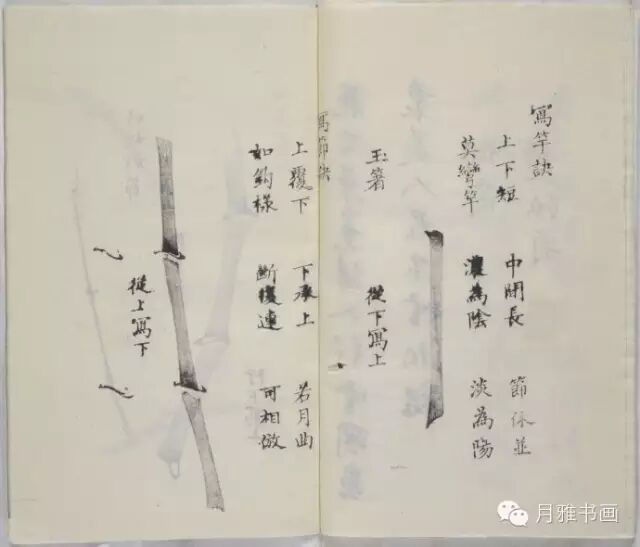 寫竿訣
上下短 中間長 節休並
莫彎竿 濃為陰 淡為陽
玉箸
從下寫上
寫節訣
上覆下 下承上 若月曲
如鉤樣 斷復連 可相倣
從上寫下
月雅书画